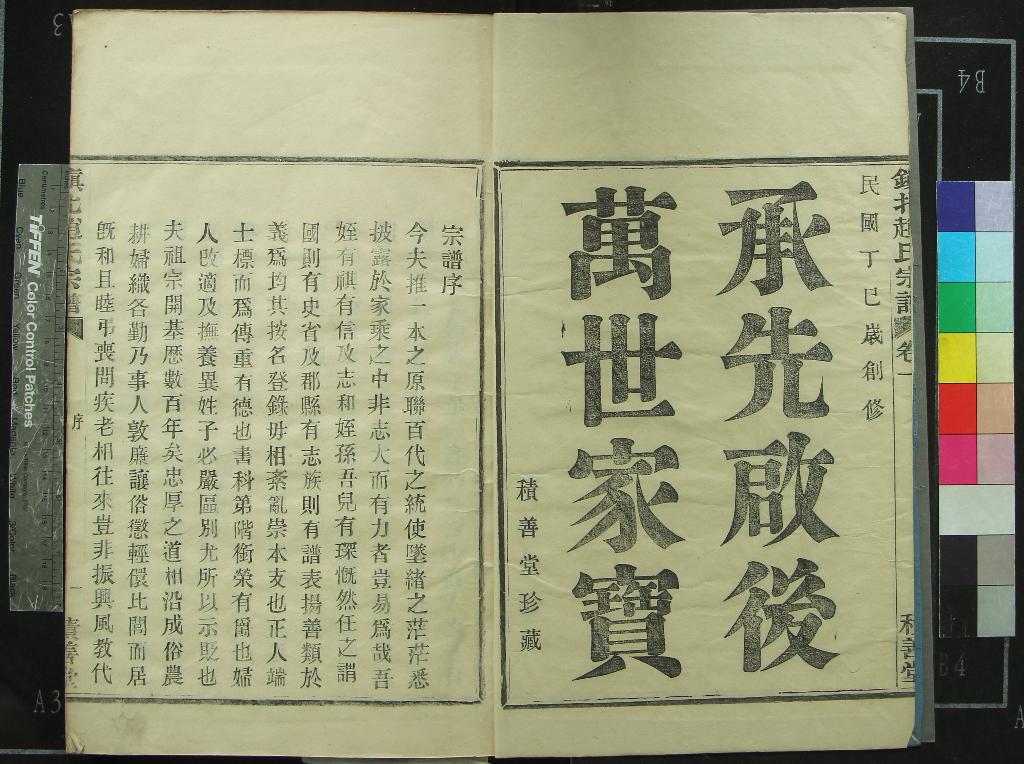 民國丁巳歲創修
承先啟後
萬世家寶
積善堂珍藏
趙氏宗譜
卷一
積善堂
宗譜序
今夫推一本之原聯百代之統使墜緒之茫茫悉
披露於家乘之中非志大而有力者豈易為哉吾
姪有祺有信及志和姪孫吾兒有琛慨然任之謂
國則有史省及郡縣有志族則有譜表揚善類於
義爲均其按名登錄毋相紊亂崇本支也正人端
士標而爲傳重有德也書科第階銜榮有爵也婦
人改適及撫養異姓子必嚴區別尤所以示貶也
夫祖宗開基歷數百年矣忠厚之道相沿成俗農
耕婦織各勤乃事人敦廉讓俗懲輕儇比閭而居
旣和且睦弔喪問疾老相往來豈非振興風教代
氏宗譜
序
一
積善堂
TIFFEN Color Control Patches
Centimetres
Blue
Cyan
Green
Yellow
A3
B4
B4
A3